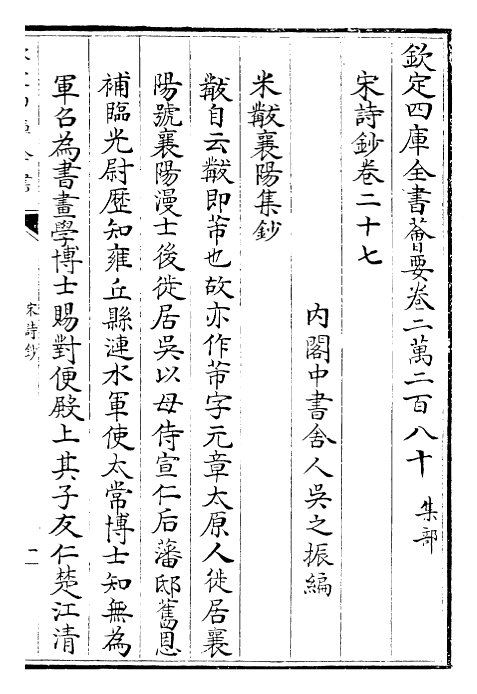 欽定四庫全書薈要卷二萬二百八十 集部
宋詩鈔卷二十七
內閣中書舍人吳之振編
米黻襄陽集鈔
黻自云黻即芾也故亦作芾字元章太原人徙居襄
陽號襄陽漫士後徙居吳以母侍宣仁后藩邸舊恩
補臨光尉歷知雍丘縣漣水軍使太常博士知無為
軍召為書畫學博士賜對便殿上其子友仁楚江清
宋詩鈔